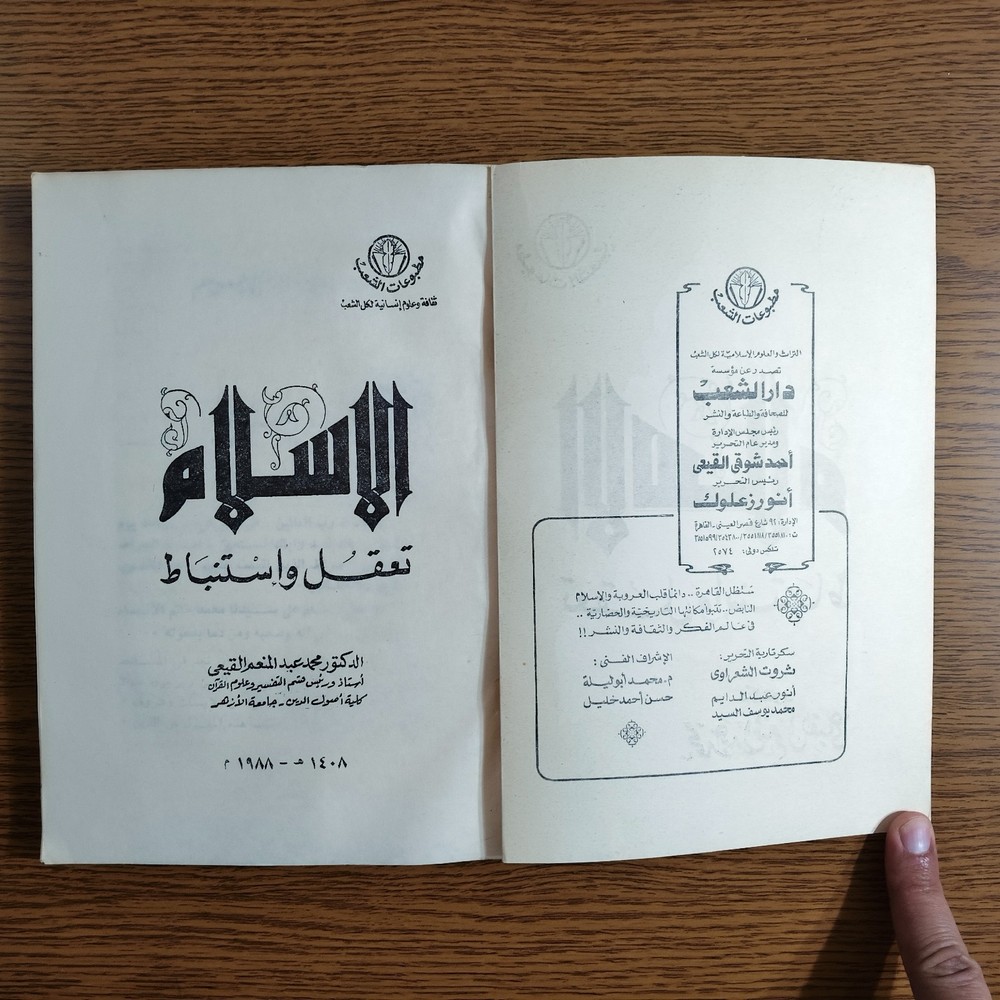 مطبوعات الشعب
التراث والعلوم الإسلامية لكل الشعب
تصدر عن مؤسسة
دار الشعب
للصحافة والطباعة والنشر
رئيس مجلس الإدارة
ومدير عام التحرير
أحمد شوقى القيعى
رئيس التحرير
أنور زعلوك
الإدارة: ٩٢ شارع قصر العينى - القاهرة
تلكس دولى: ٢٥٧٤
ستظل القاهرة .. دائما قلب العروبة والإسلام
النابض .. تتبوأ مكانتها التاريخية والحضارية ..
فى عالم الفكر والثقافة والنشر !!
سكرتارية التحرير:
ثروت الشعراوى
أنور عبد الدايم
محمد يوسف السيد
الإشراف الفنى:
م. محمد أبوليلة
حسن أحمد خليل
مطبوعات الشعب
ثقافة وعلوم إنسانية لكل الشعب
الإسلام
تعقل واستنباط
الدكتور محمد عبد المنعم القيعى
أستاذ ورئيس قسم التفسير وعلوم القرآن
كلية أصول الدين - جامعة الأزهر
١٤٠٨ هـ - ١٩٨٨ م